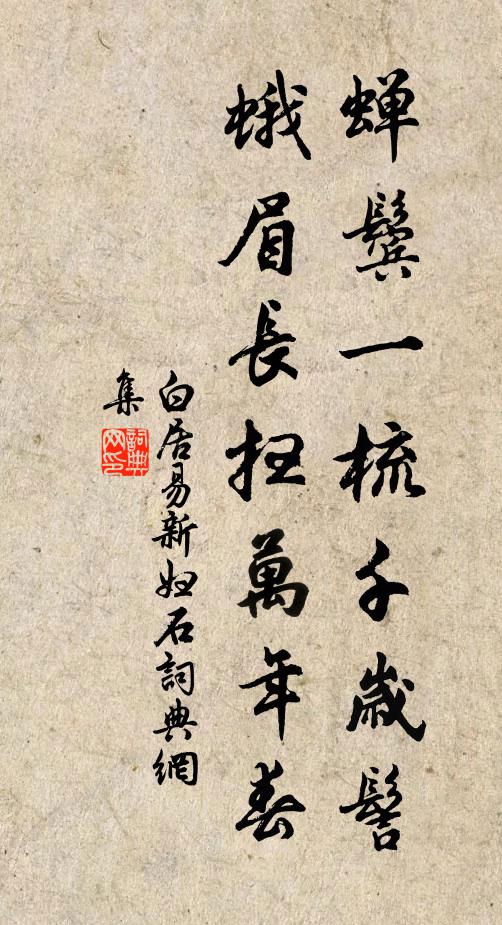 蝉鬓一梳千歲髻
蛾眉長扫萬年春
白居易新妇石詞典網
集
詞典网印